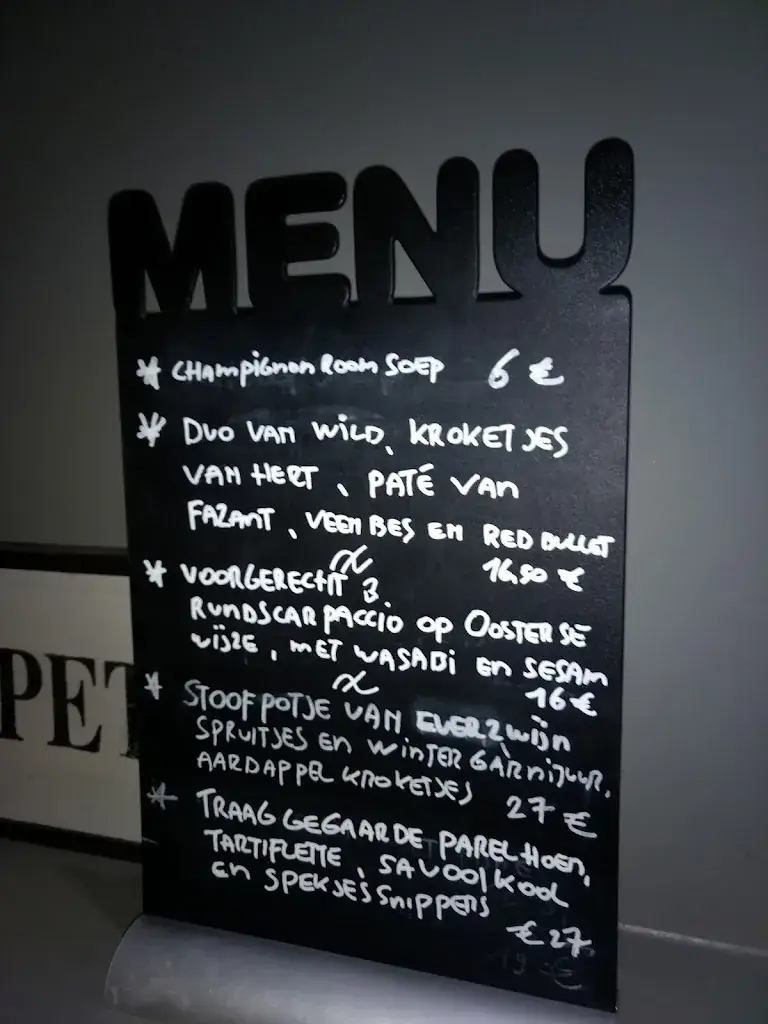 MENU
* CHAMPIGNON ROOM SOEP 6 €
* DUO VAN WILD, KROKETJES
VAN HERT, PATÉ VAN
FAZANT, VEEN BES EN RED BULLET
16,50 €
* VOORGERECHT 3
RUNDSCARPACCIO OP OOSTERSE
WIJZE, MET WASABI EN SESAM
16 €
* STOOFPOTJE VAN EVERZWIJN
SPRUITJES EN WINTER GARNITUUR,
AARDAPPEL KROKETJES
27 €
* TRAAG GEGAARDE PARELHOEN,
TARTIFLETTE, SAVOOIKOOL
EN SPEKJESSNIPPERS
€ 27
19 €
PET